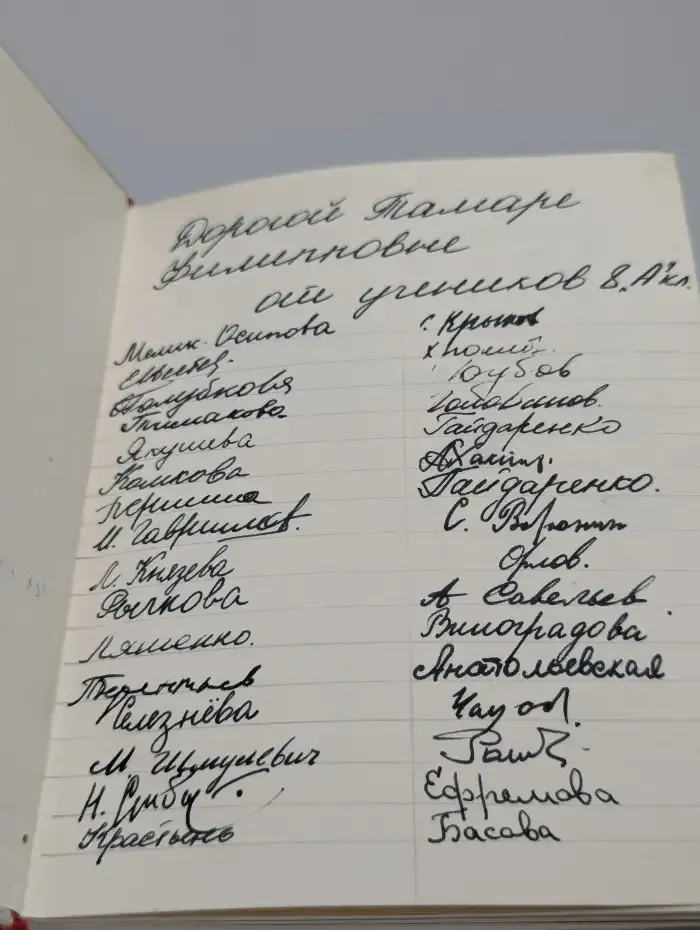 Дорогой Тамаре
Филипповне
от учеников 8 „А" кл.
Мелик-Осипова
Голубкова
Тимакова
Якушева
Комкова
Першина
М. Гаврилов.
Л. Князева
Рычкова
Ляшенко.
Терентьев
Селезнёва
М. Шмулевич
Н.
Крастынь
С. Крылов
Голованов.
Гайдаренко
Гайдаренко.
С. Воронин
Орлов.
А Савельев
Виноградова
Анатольевская
Ефремова
Басова